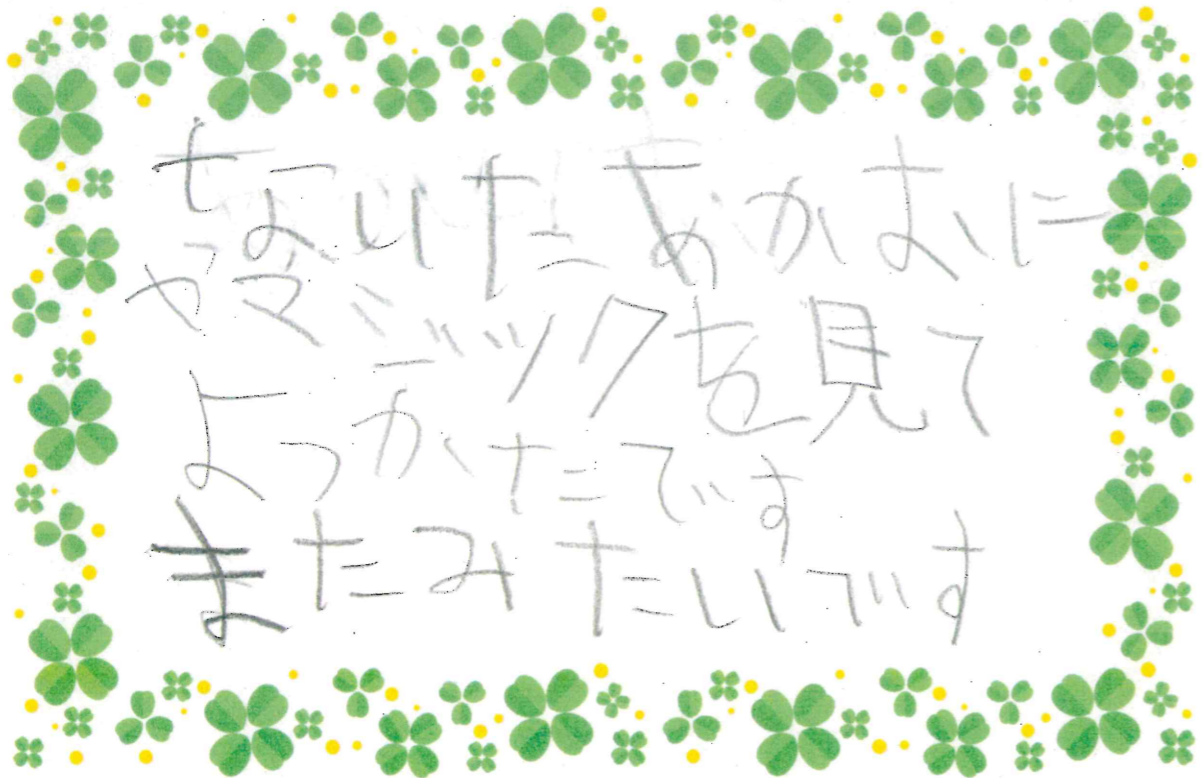 ないたあかおに
やマジックを見て
よっかたです
またみたいです